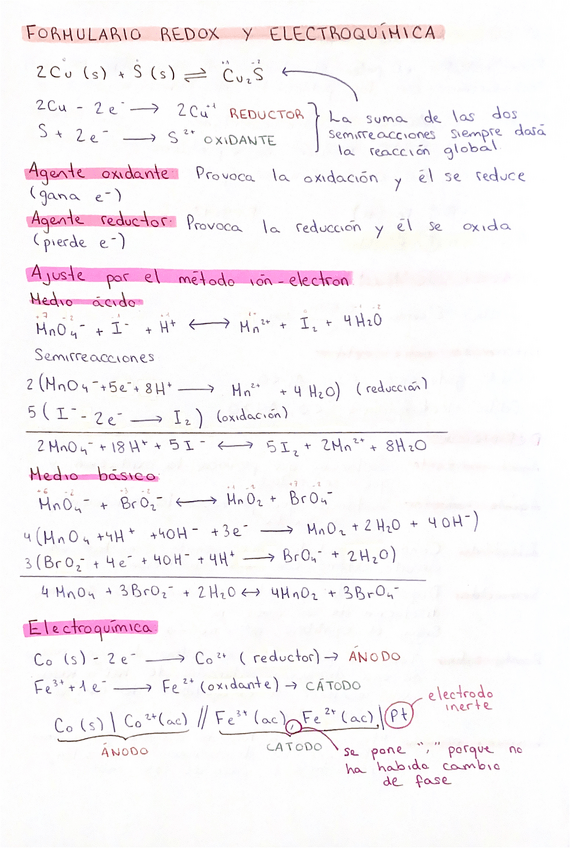 FORMULARIO REDOX Y ELECTROQUÍMICA
2Cu (s) + S (s) ⇌ Cu₂S
2Cu - 2e⁻ → 2Cu⁺¹ REDUCTOR
S + 2e⁻ → S²⁺ OXIDANTE
La suma de las dos
semirreacciones siempre dará
la reacción global
Agente oxidante: Provoca la oxidación y él se reduce
(gana e⁻)
Agente reductor: Provoca la reducción y él se oxida
(pierde e⁻)
Ajuste por el método ión-electron
Medio ácido
MnO₄⁻ + I⁻ + H⁺ ⟷ Mn²⁺ + I₂ + 4H₂O
Semirreacciones
2(MnO₄⁻+5e⁻+8H⁺ → Mn²⁺ + 4H₂O) (reducción)
5( I⁻ - 2e⁻ → I₂) (oxidación)
2MnO₄⁻ + 18H⁺ + 5I⁻ ⟷ 5I₂ + 2Mn²⁺ + 8H₂O
Medio básico
MnO₄⁻ + BrO₂⁻ ⟷ MnO₂ + BrO₄⁻
4(MnO₄ +4H⁺ +4OH⁻ +3e⁻ → MnO₂ + 2H₂O + 4OH⁻)
3(BrO₂⁻ + 4e⁻ + 4OH⁻ + 4H⁺ → BrO₄⁻ + 2H₂O)
4MnO₄ + 3BrO₂⁻ + 2H₂O ↔ 4MnO₂ + 3BrO₄⁻
Electroquímica
Co (s) - 2e⁻ → Co²⁺ (reductor) → ÁNODO
Fe³⁺+1e⁻ → Fe²⁺ (oxidante) → CÁTODO
electrodo
inerte
Co(s) | Co²⁺(ac) // Fe³⁺(ac), Fe²⁺(ac) | Pt
ÁNODO CATODO
se pone "," porque no
ha habido cambio
de fase